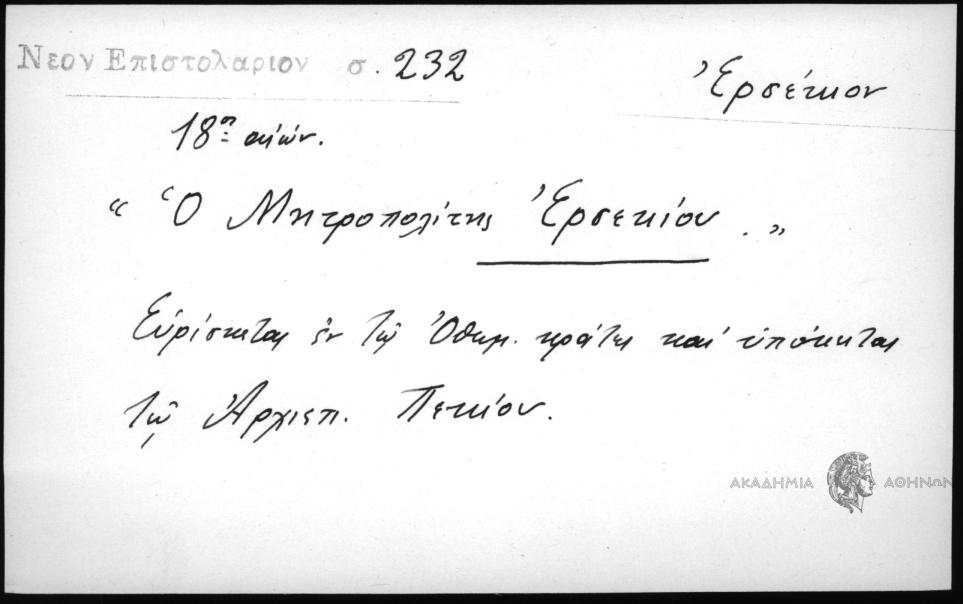 Νεον Επιστολαριον σ. 232
Ἐρσέκιον
18ης αἰών.
“ Ὁ Μητροπολίτης Ἐρσεκίου . ”
Εὑρίσκεται ἐν τῷ Ὀθωμ. κράτει καὶ ὑπόκειται
τῷ Ἀρχιεπ. Πεκίου.
ΑΚΑΔΗΜΙΑ ΑΘΗΝΩΝ